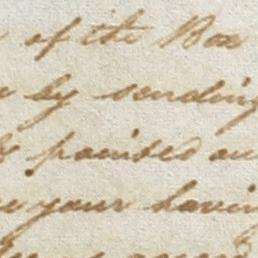 of the Box
by sending
pointed ou
your havin